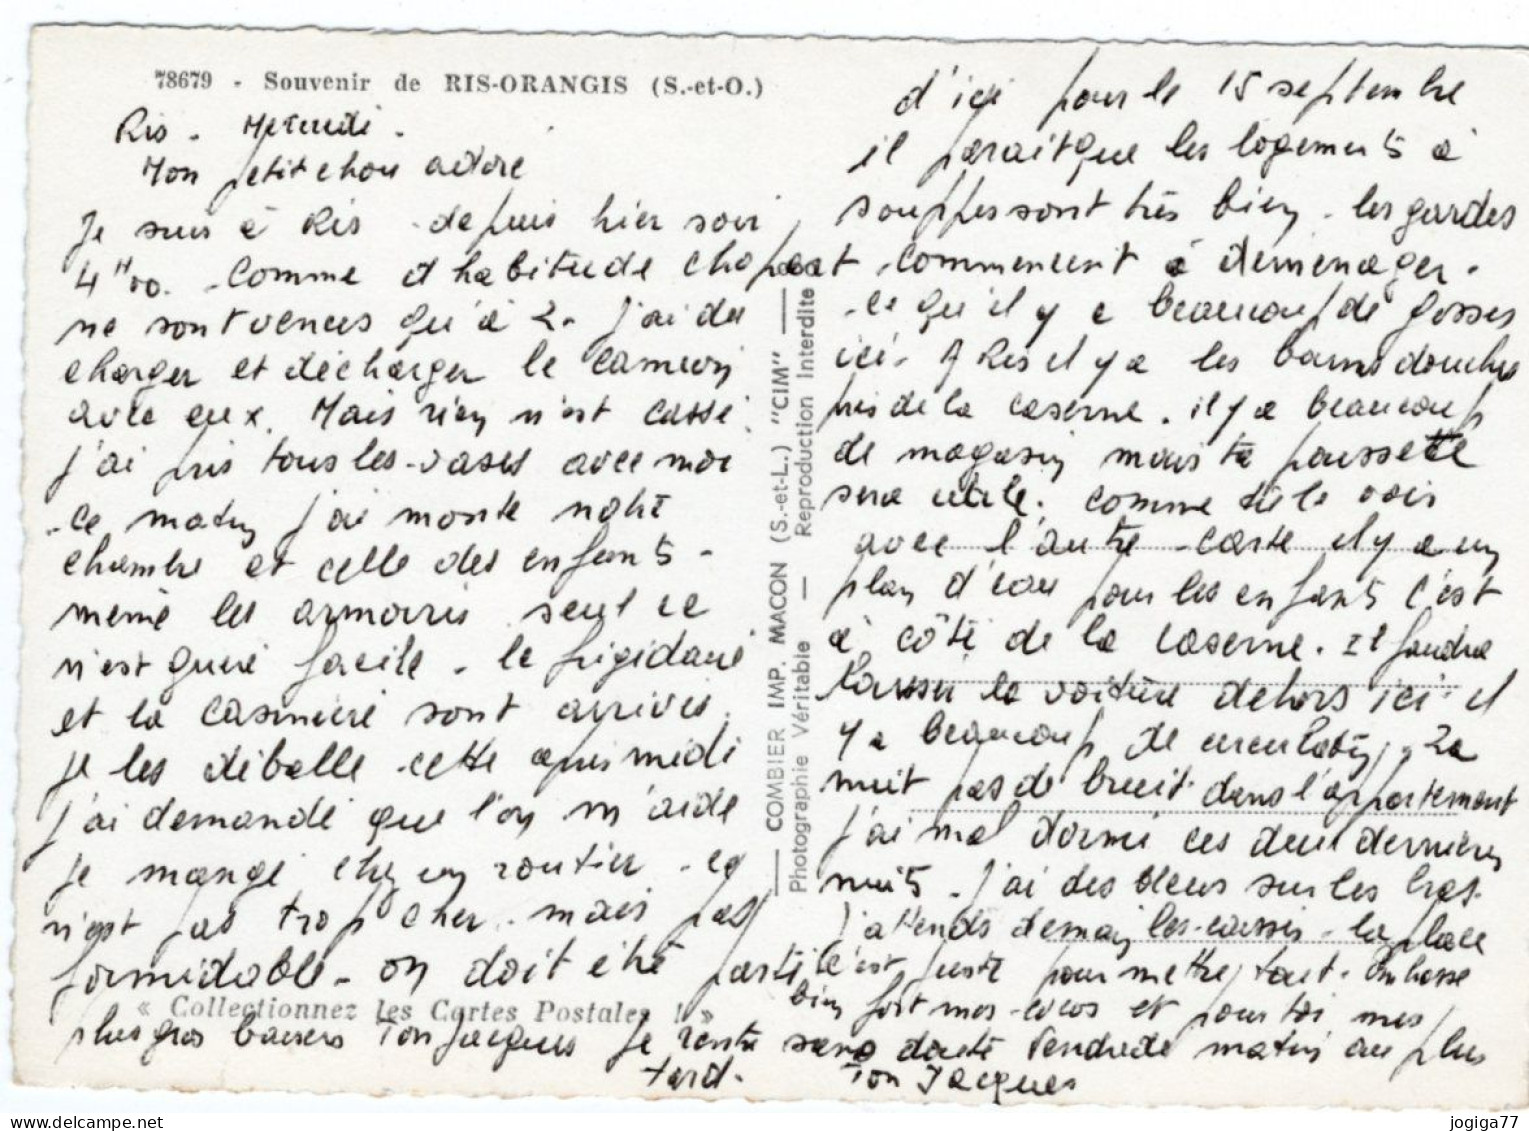 78679 - Souvenir de RIS-ORANGIS (S.-et-O.)
Ris - Mercredi -
Mon petit chou adoré
Je suis à Ris depuis hier soir
4H00. Comme d'habitude
ne sont venus qu'à 2. J'ai du
charger et décharger le camion
avec eux. Mais rien n'est cassé.
j'ai pris tous les vases avec moi
Ce matin j'ai monté notre
chambre et celle des enfants -
même les armoires seul ce
n'est guere facile - le frigidaire
et la casiniere sont arrivés.
je les déballe cette apres midi
j'ai demandé que l'on m'aide
Je mange chez un routier - ce
n'est pas trop cher mais pas
formidable - on doit etre parti
d'ici pour le 15 septembre
il parait que les logements à
souppes sont très bien - les gardes
commencent à demenager.
Ce qu'il y a beaucoup de gosses
ici. A Ris il y a les bains douches
pres de la caserne. il y a beaucoup
de magasin mais ta poussette
sera utile. Comme tu le vois
avec l'autre carte il y a un
plan d'eau pour les enfants c'est
à côté de la caserne. Il faudra
laisser la voiture dehors ici il
y a beaucoup de circulation, la
nuit pas de bruit dans l'appartement
j'ai mal dormi ces deux dernieres
nuits - j'ai des bleus sur les bras.
J'attends demain les caisses - la place
c'est juste pour mettre tout. Embrasse
bien fort mes cocos et pour toi mes
plus gros baisers Ton Jacques Je rentre sans doute Vendredi matin au plus
tard. Ton Jacques
« Collectionnez les Cartes Postales ! »
COMBIER IMP. MACON (S.-et-L.) "CIM"
Photographie Véritable — Reproduction Interdite
jogiga77